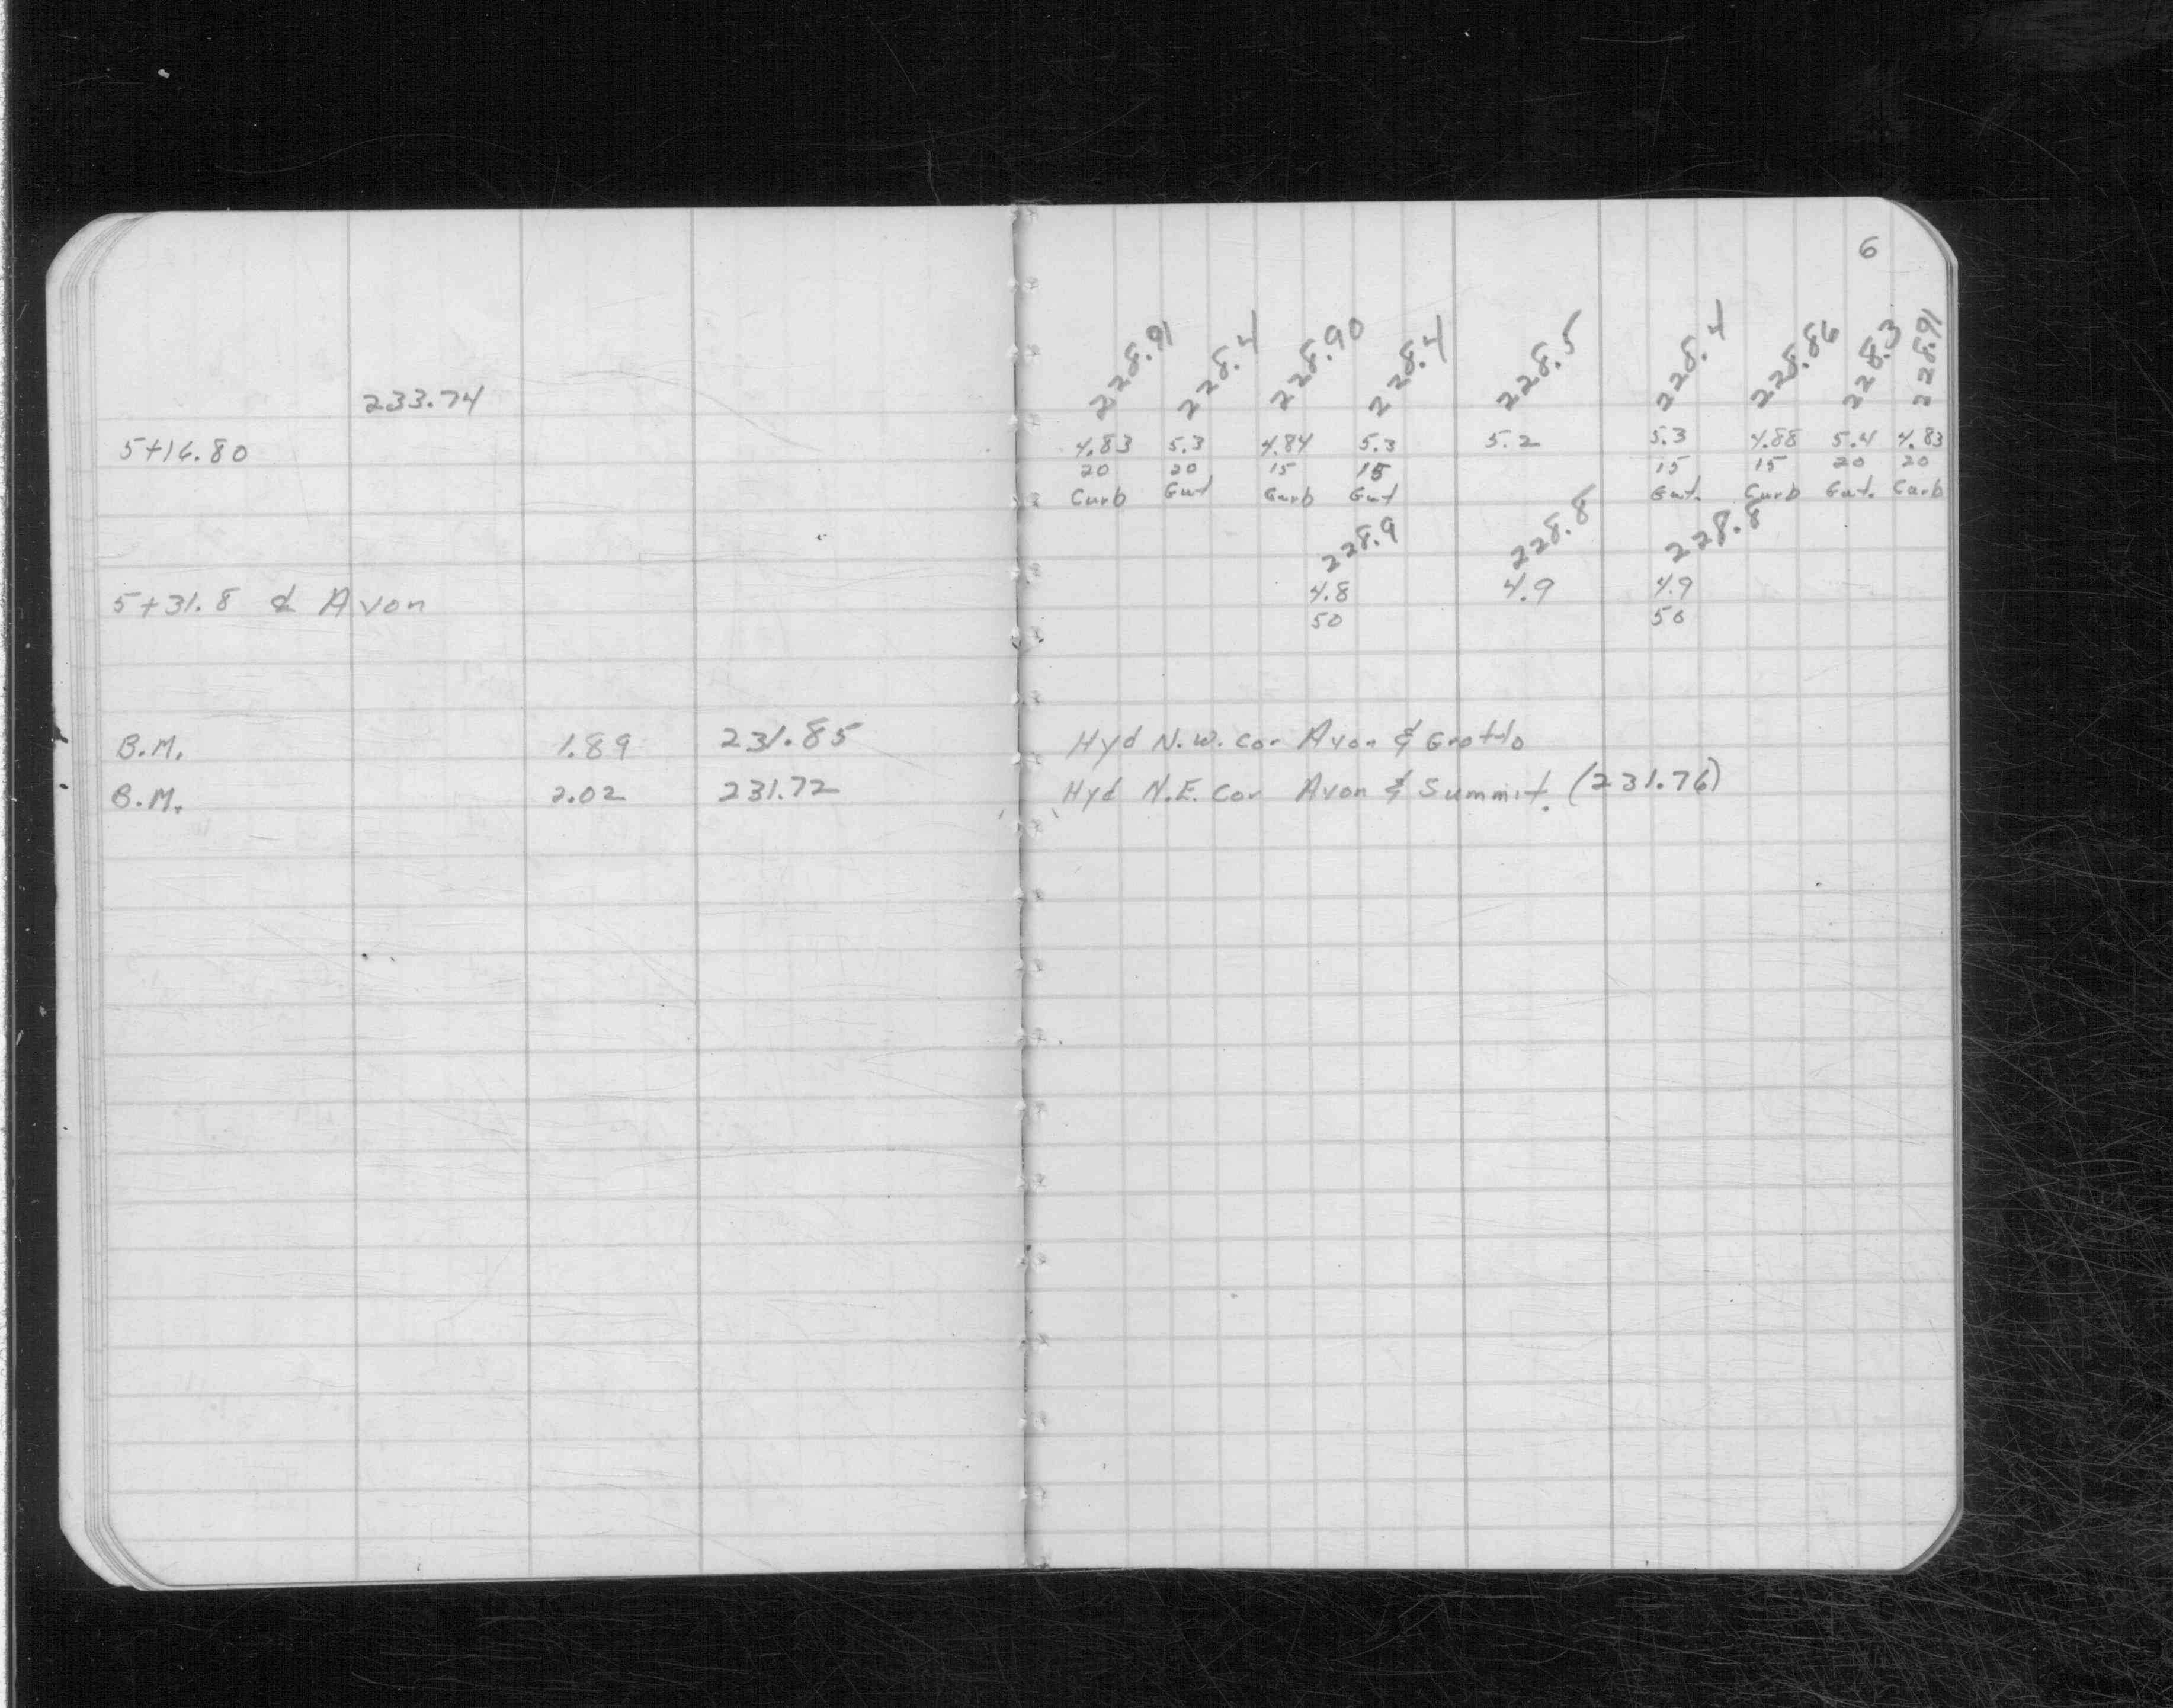 6
228.91 228.4 228.90 228.4 228.5 228.4 228.86 228.3 228.91
233.74
5+16.80 4.83 5.3 4.84 5.3 5.2 5.3 4.88 5.4 4.83
20 20 15 15 15 15 20 20
Curb Gut Curb Gut Gut. Curb Gut. Curb
228.9 228.8 228.8
5+31.8 ₵ Avon 4.8 4.9 4.9
50 50
B.M. 1.89 231.85 Hyd N.W. Cor Avon & Grotto
B.M. 2.02 231.72 Hyd N.E. Cor Avon & Summit. (231.76)